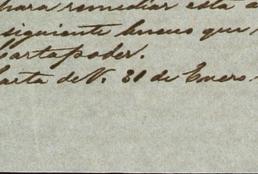 para remediar esta a
siguiente bueno que
cartapoder.
carta de V. 31 de Enero